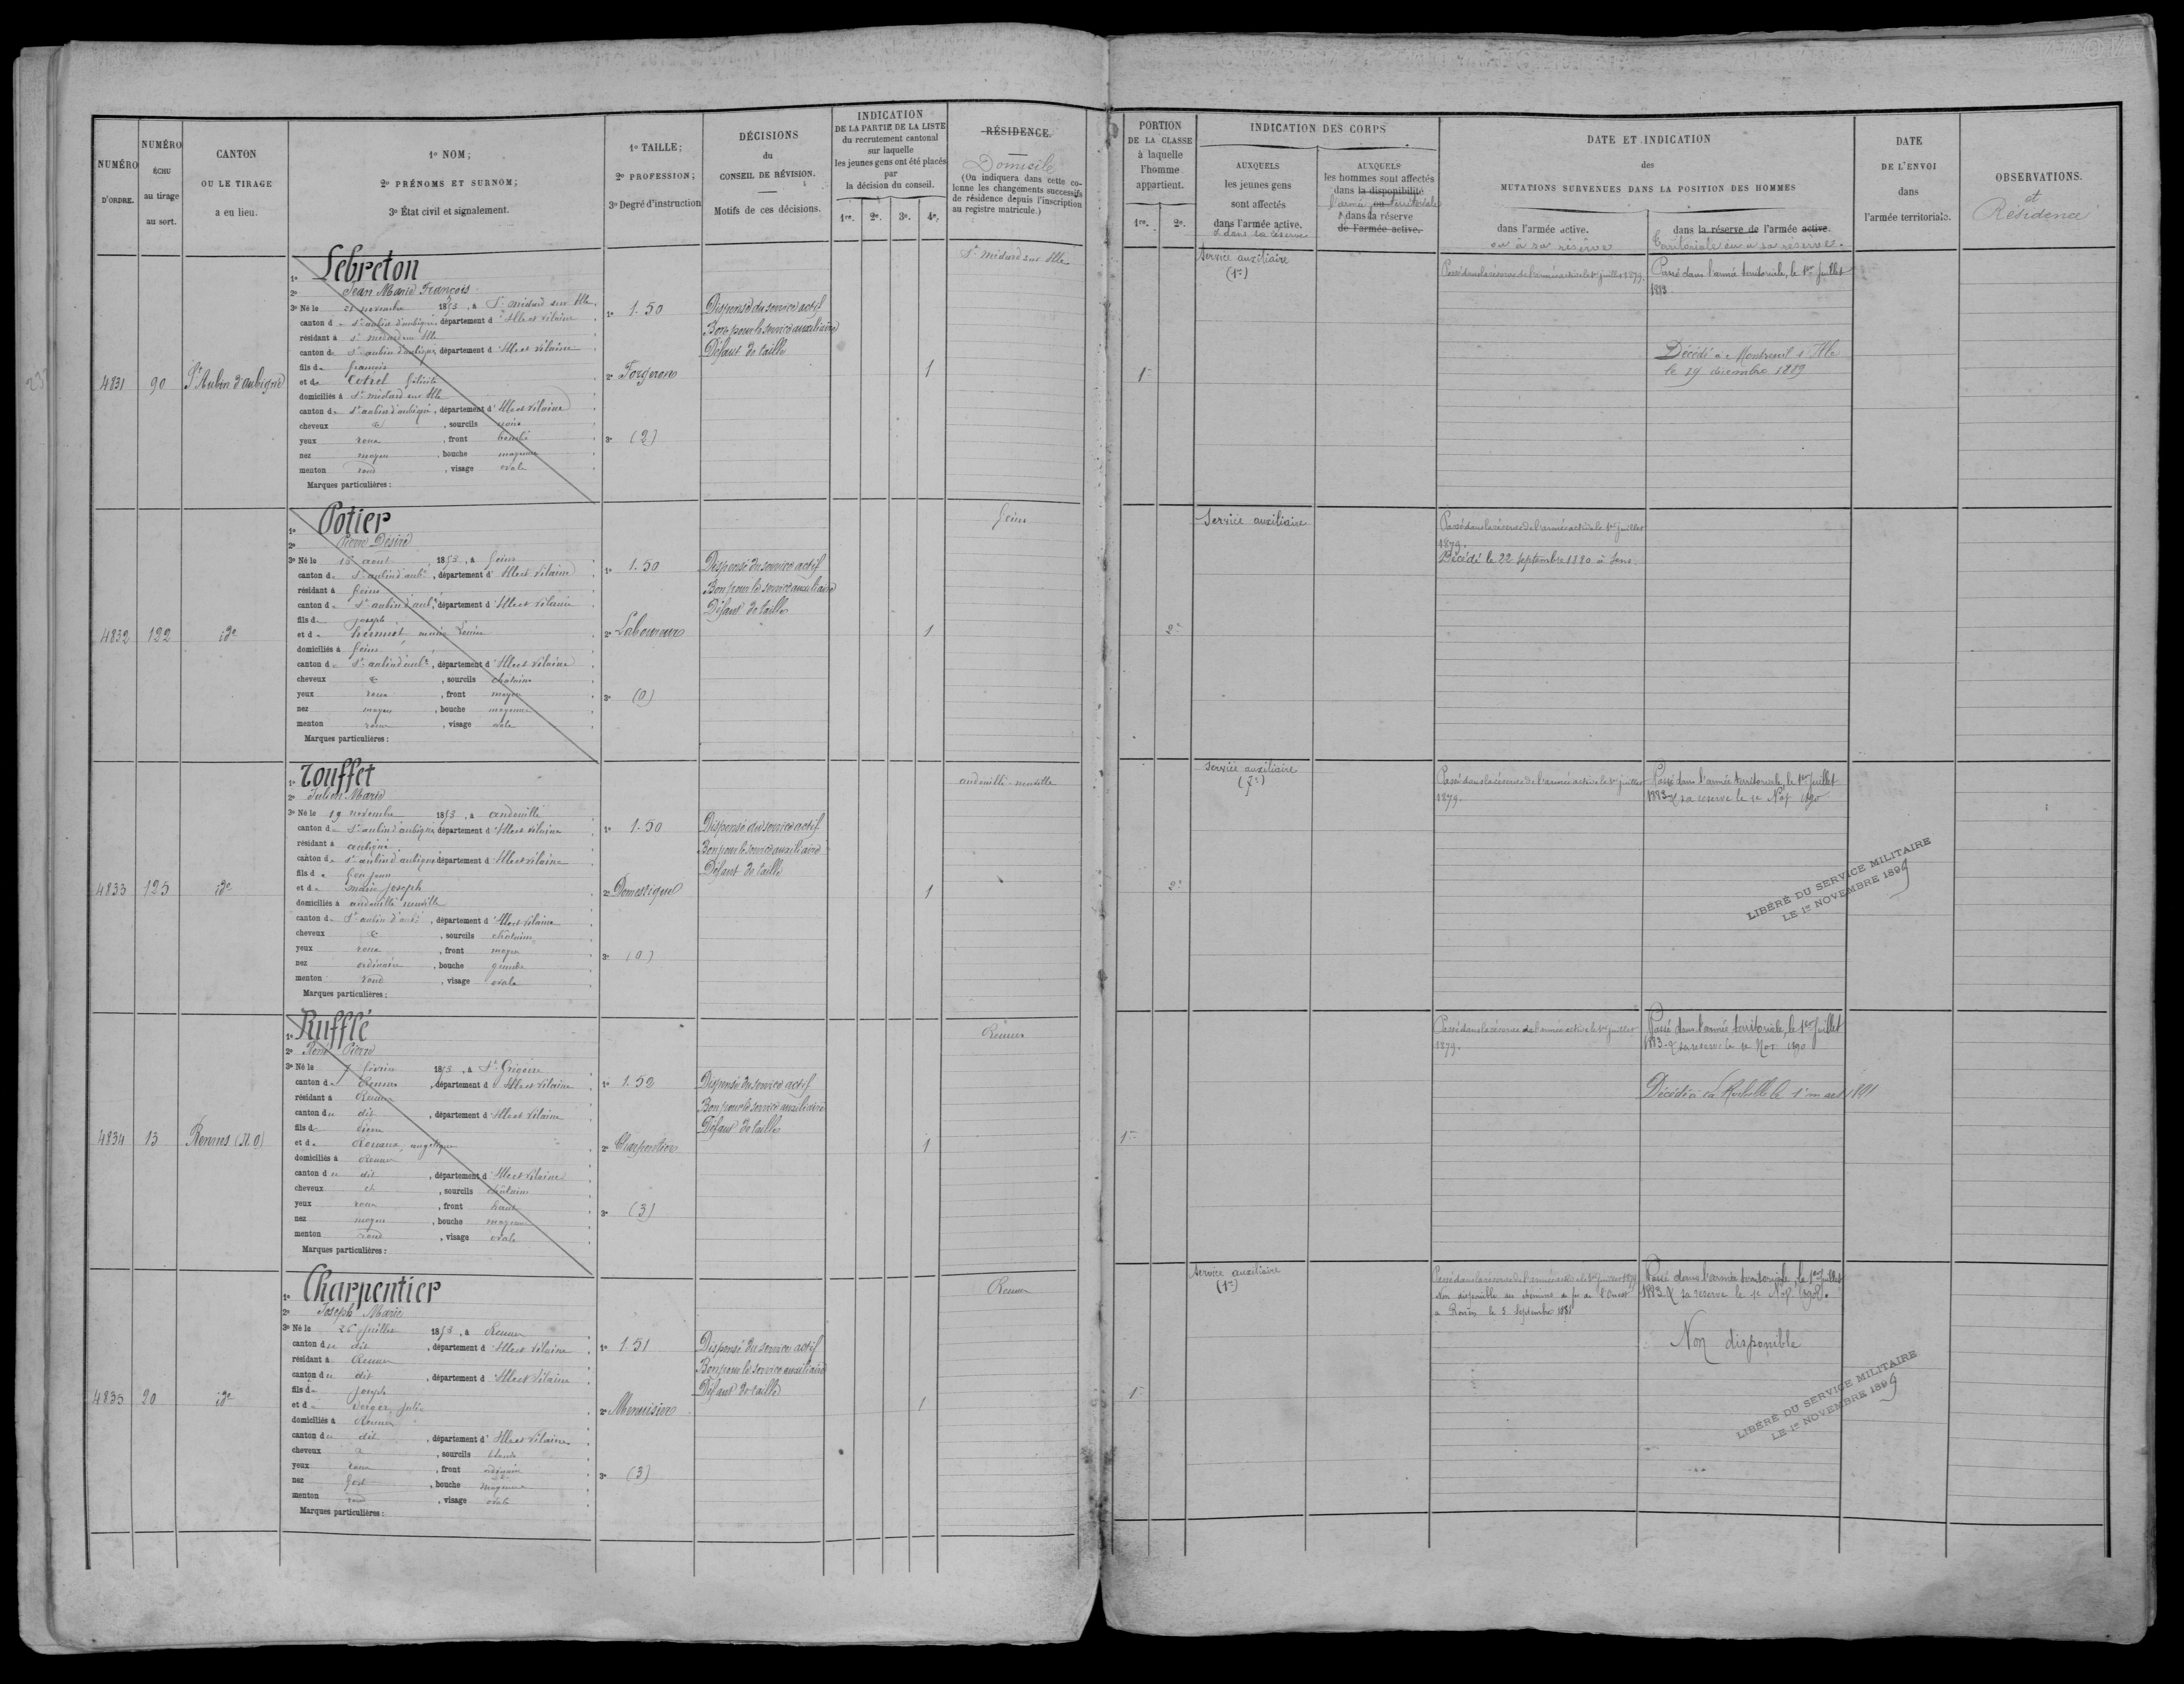 NUMÉRO
D'ORDRE.
NUMÉRO
ÉCHU
au tirage
au sort.
CANTON
OU LE TIRAGE
a eu lieu.
1º NOM;
2º PRÉNOMS ET SURNOM;
3º État civil et signalement.
1º TAILLE;
2º PROFESSION;
3º Degré d'instruction
DÉCISIONS
du
CONSEIL DE RÉVISION.
Motifs de ces décisions.
INDICATION
DE LA PARTIE DE LA LISTE
du recrutement cantonal
sur laquelle
les jeunes gens ont été placés
par
la décision du conseil.
1re. 2e. 3e. 4e.
RÉSIDENCE.
Domicile
(On indiquera dans cette co-
lonne les changements successifs
de résidence depuis l'inscription
au registre matricule.)
PORTION
DE LA CLASSE
à laquelle
l'homme
appartient.
1re. 2e.
INDICATION DES CORPS
AUXQUELS
les jeunes gens
sont affectés
dans l'armée active.
& dans la réserve
AUXQUELS
les hommes sont affectés
dans la disponibilité
l'armée territoriale
& dans la réserve
de l'armée active.
DATE ET INDICATION
des
MUTATIONS SURVENUES DANS LA POSITION DES HOMMES
dans l'armée active.
ou à sa réserve
dans la réserve de l'armée active.
territoriale ou à sa réserve.
DATE
DE L'ENVOI
dans
l'armée territoriale.
OBSERVATIONS.
et
Résidence
4831
90
St Aubin d'aubigné
1º Lebreton
2º Jean Marie François
3º Né le 21 novembre 1853, à St médard sur Ille
canton de St aubin d'aubigné, département d'Ille et Vilaine
résidant à St médard sur Ille
canton de St aubin d'aubigné, département d'Ille et Vilaine
fils de françois
et de Cotrel félicité
domiciliés à St médard sur Ille
canton de St aubin d'aubigné, département d'Ille et Vilaine
cheveux &, sourcils noirs
yeux roux, front bombé
nez moyen, bouche moyenne
menton rond, visage ovale
Marques particulières :
1º 1.50
2º Forgeron
3º (2)
Dispensé du service actif
Bon pour le service auxiliaire
Défaut de taille
1
St médard sur Ille
1re
Service auxiliaire
(1re)
Passé dans la réserve de l'armée active le 1er juillet 1879.
Passé dans l'armée territoriale, le 1er juillet
1883
Décédé à Montreuil s/ Ille
le 19 décembre 1889
4832
122
ide
1º Potier
2º Pierre Désiré
3º Né le 15 août 1853, à feins
canton de St aubin d'aubé, département d'Ille et Vilaine
résidant à feins
canton de St aubin d'aubé, département d'Ille et Vilaine
fils de joseph
et de marie Louise
domiciliés à feins
canton de St aubin d'aubé, département d'Ille et Vilaine
cheveux &, sourcils châtains
yeux roux, front moyen
nez moyen, bouche moyenne
menton rond, visage ovale
Marques particulières :
1º 1.50
2º Laboureur
3º (0)
Dispensé du service actif
Bon pour le service auxiliaire
Défaut de taille
1
feins
2e
Service auxiliaire
Passé dans la réserve de l'armée active le 1er juillet
1879.
Décédé le 22 septembre 1880 à Sens.
4833
125
ide
1º Touffet
2º Julien Marie
3º Né le 19 novembre 1853, à andouillé
canton de St aubin d'aubigné, département d'Ille et Vilaine
résidant à aubigné
canton de St aubin d'aubigné département d'Ille et Vilaine
fils de
et de marie joseph
domiciliés à andouillé neuville
canton de St aubin d'aubé, département d'Ille et Vilaine
cheveux &, sourcils châtains
yeux roux, front moyen
nez ordinaire, bouche grande
menton rond, visage ovale
Marques particulières :
1º 1.50
2º Domestique
3º (0)
Dispensé du service actif
Bon pour le service auxiliaire
Défaut de taille
1
andouillé-neuville
2e
Service auxiliaire
Passé dans la réserve de l'armée active le 1er juillet
1879.
Passé dans l'armée territoriale, le 1er juillet
1883 & sa réserve le 1e Nov 1890
LIBÉRÉ DU SERVICE MILITAIRE
LE 1er NOVEMBRE 1899
4834
13
Rennes (N.O)
1º Rufflé
2º René Pierre
3º Né le 7 février 1853, à St Grégoire
canton de Rennes, département d'Ille et Vilaine
résidant à Rennes
canton du dit, département d'Ille et Vilaine
fils de Pierre
et de Rouaux, angélique
domiciliés à Rennes
canton du dit, département d'Ille et Vilaine
cheveux et, sourcils châtains
yeux roux, front haut
nez moyen, bouche moyenne
menton rond, visage ovale
Marques particulières :
1º 1.52
2º Charpentier
3º (3)
Dispensé du service actif
Bon pour le service auxiliaire
Défaut de taille
1
Rennes
1re
Passé dans la réserve de l'armée active le 1er juillet
1879.
Passé dans l'armée territoriale, le 1er juillet
1883. & sa réserve le 1e Nov 1890
Décédé à la Rochelle le 1er mars 1891
4835
20
ide
1º Charpentier
2º Joseph Marie
3º Né le 26 juillet 1853, à Rennes
canton du dit, département d'Ille et Vilaine
résidant à Rennes
canton du dit, département d'Ille et Vilaine
fils de joseph
et de Berger, julie
domiciliés à Rennes
canton du dit, département d'Ille et Vilaine
cheveux &, sourcils blonds
yeux roux, front ordinaire
nez fort, bouche moyenne
menton rond, visage ovale
Marques particulières :
1º 1.51
2º Menuisier
3º (3)
Dispensé du service actif
Bon pour le service auxiliaire
Défaut de taille
1
Rennes
1re
Service auxiliaire
(1re)
Passé dans la réserve de l'armée active le 1er juillet 1879
Non disponible des chemins de fer de l'Ouest
à Rennes le 5 Septembre 1881
Passé dans l'armée territoriale, le 1er juillet
1883 & sa réserve le 1e Nov 1890.
Non disponible
LIBÉRÉ DU SERVICE MILITAIRE
LE 1er NOVEMBRE 1899